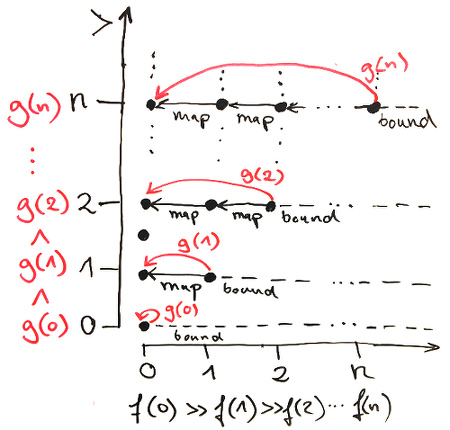 >
g(n) n g(n)
map map ... bound
⋮
g(2)
g(2) 2 map map bound ...
^
g(1)
g(1) 1 map bound ...
^
g(0)
g(0) 0 bound ...
0 1 2 n
f(0) >> f(1) >> f(2) ... f(n)